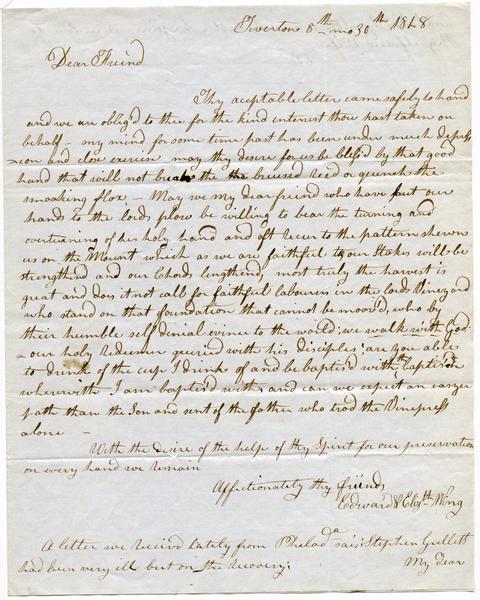 Tiverton 8th mo 30th 1848
Dear Friend
Thy aceptable letter came safely to hand
and we are oblig'd to thee for the kind interest thou hast taken on
behalf - my mind for some time past has been under much depress
=ion and close exercise may thy desire for us be bless'd by that good
hand that will not break the the bruised reed or quench the
smoaking flax - May we my dear friend who have put our
hands to the lords plow be willing to bear the turning and
overturning of his holy hand and oft recur to the pattern shewn
us on the Mount which as we are faithful to our Stakes will be
strengthend and our Chords lengthend, most truly the harvest is
great and does it not call for faithful labourers in the lords Vineyard
who stand on that foundation that cannot be moov'd, who by
their humble self denial evince to the world; we walk with God -
- our holy Redeemer queried with his disciples; are you able
to drink of the cup I drink of and be baptis'd with the baptism
wherewith I am baptis'd with, and can we expect an easyer
path than the Son and sent of the father who trod the Vinepress
alone -
With the desire of the help of thy Spirit for our preservation
on every hand we remain
Affectionately thy friends
Edward & Elizth Wing
A letter we receivd lately from Philada sais; Stephen Grellett
had been very ill but on the recovery;
My dear